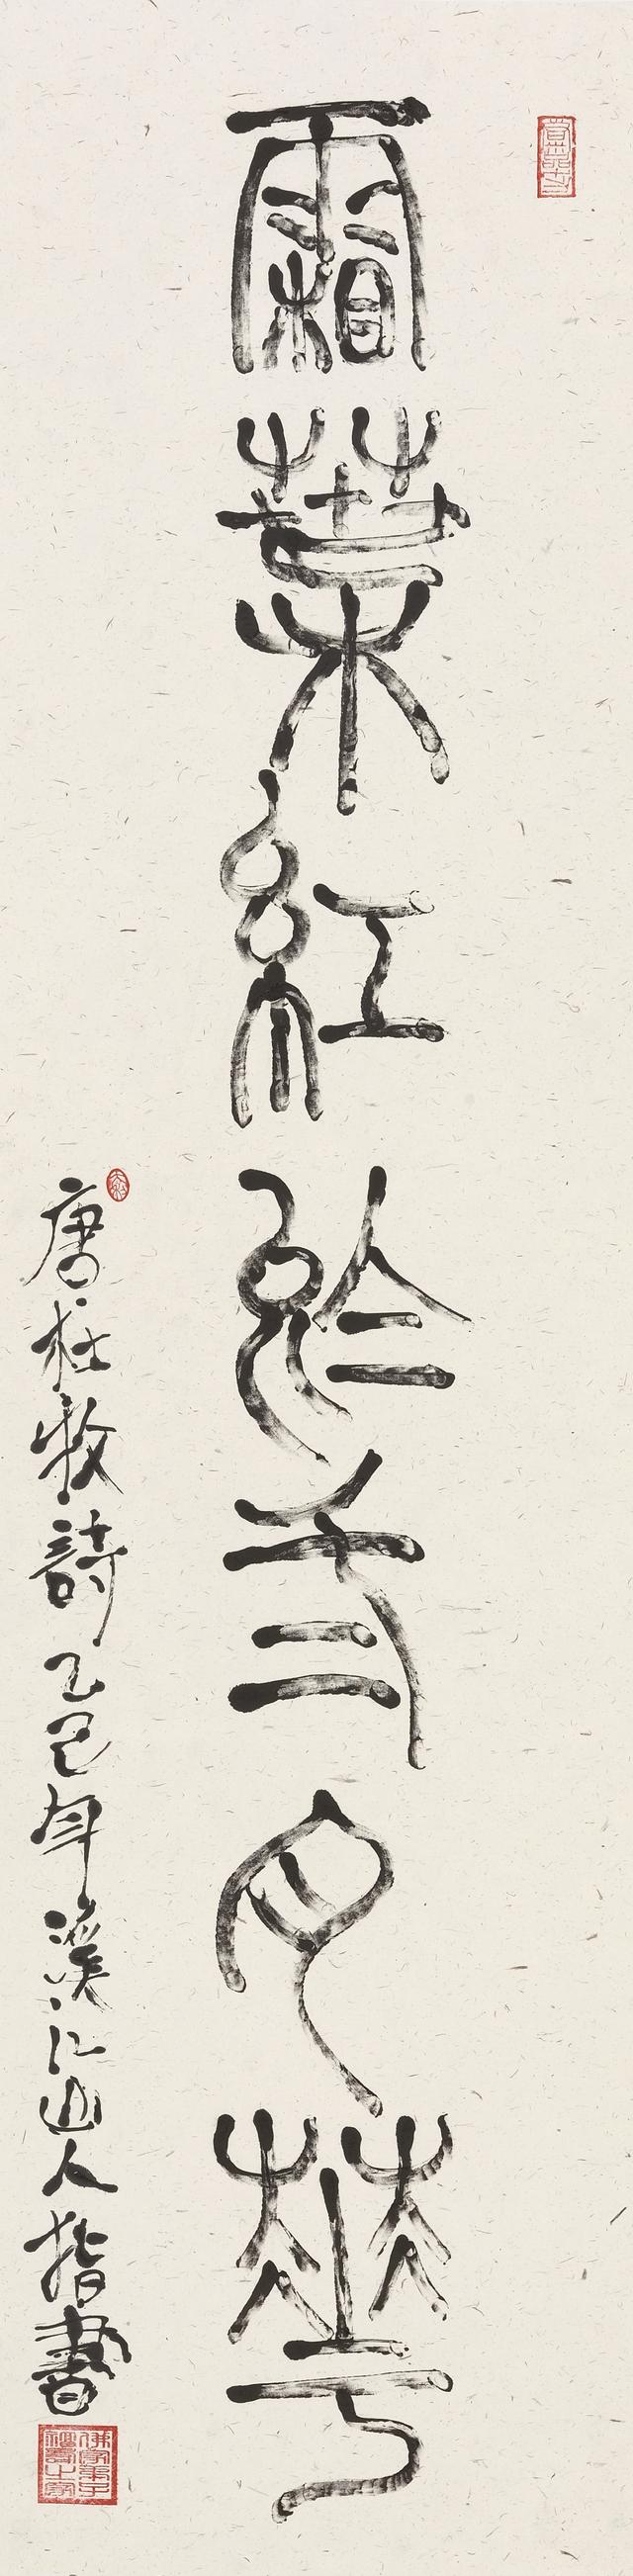 霜葉紅於弍月華
唐杜牧詩乙巳年溪江山人指書